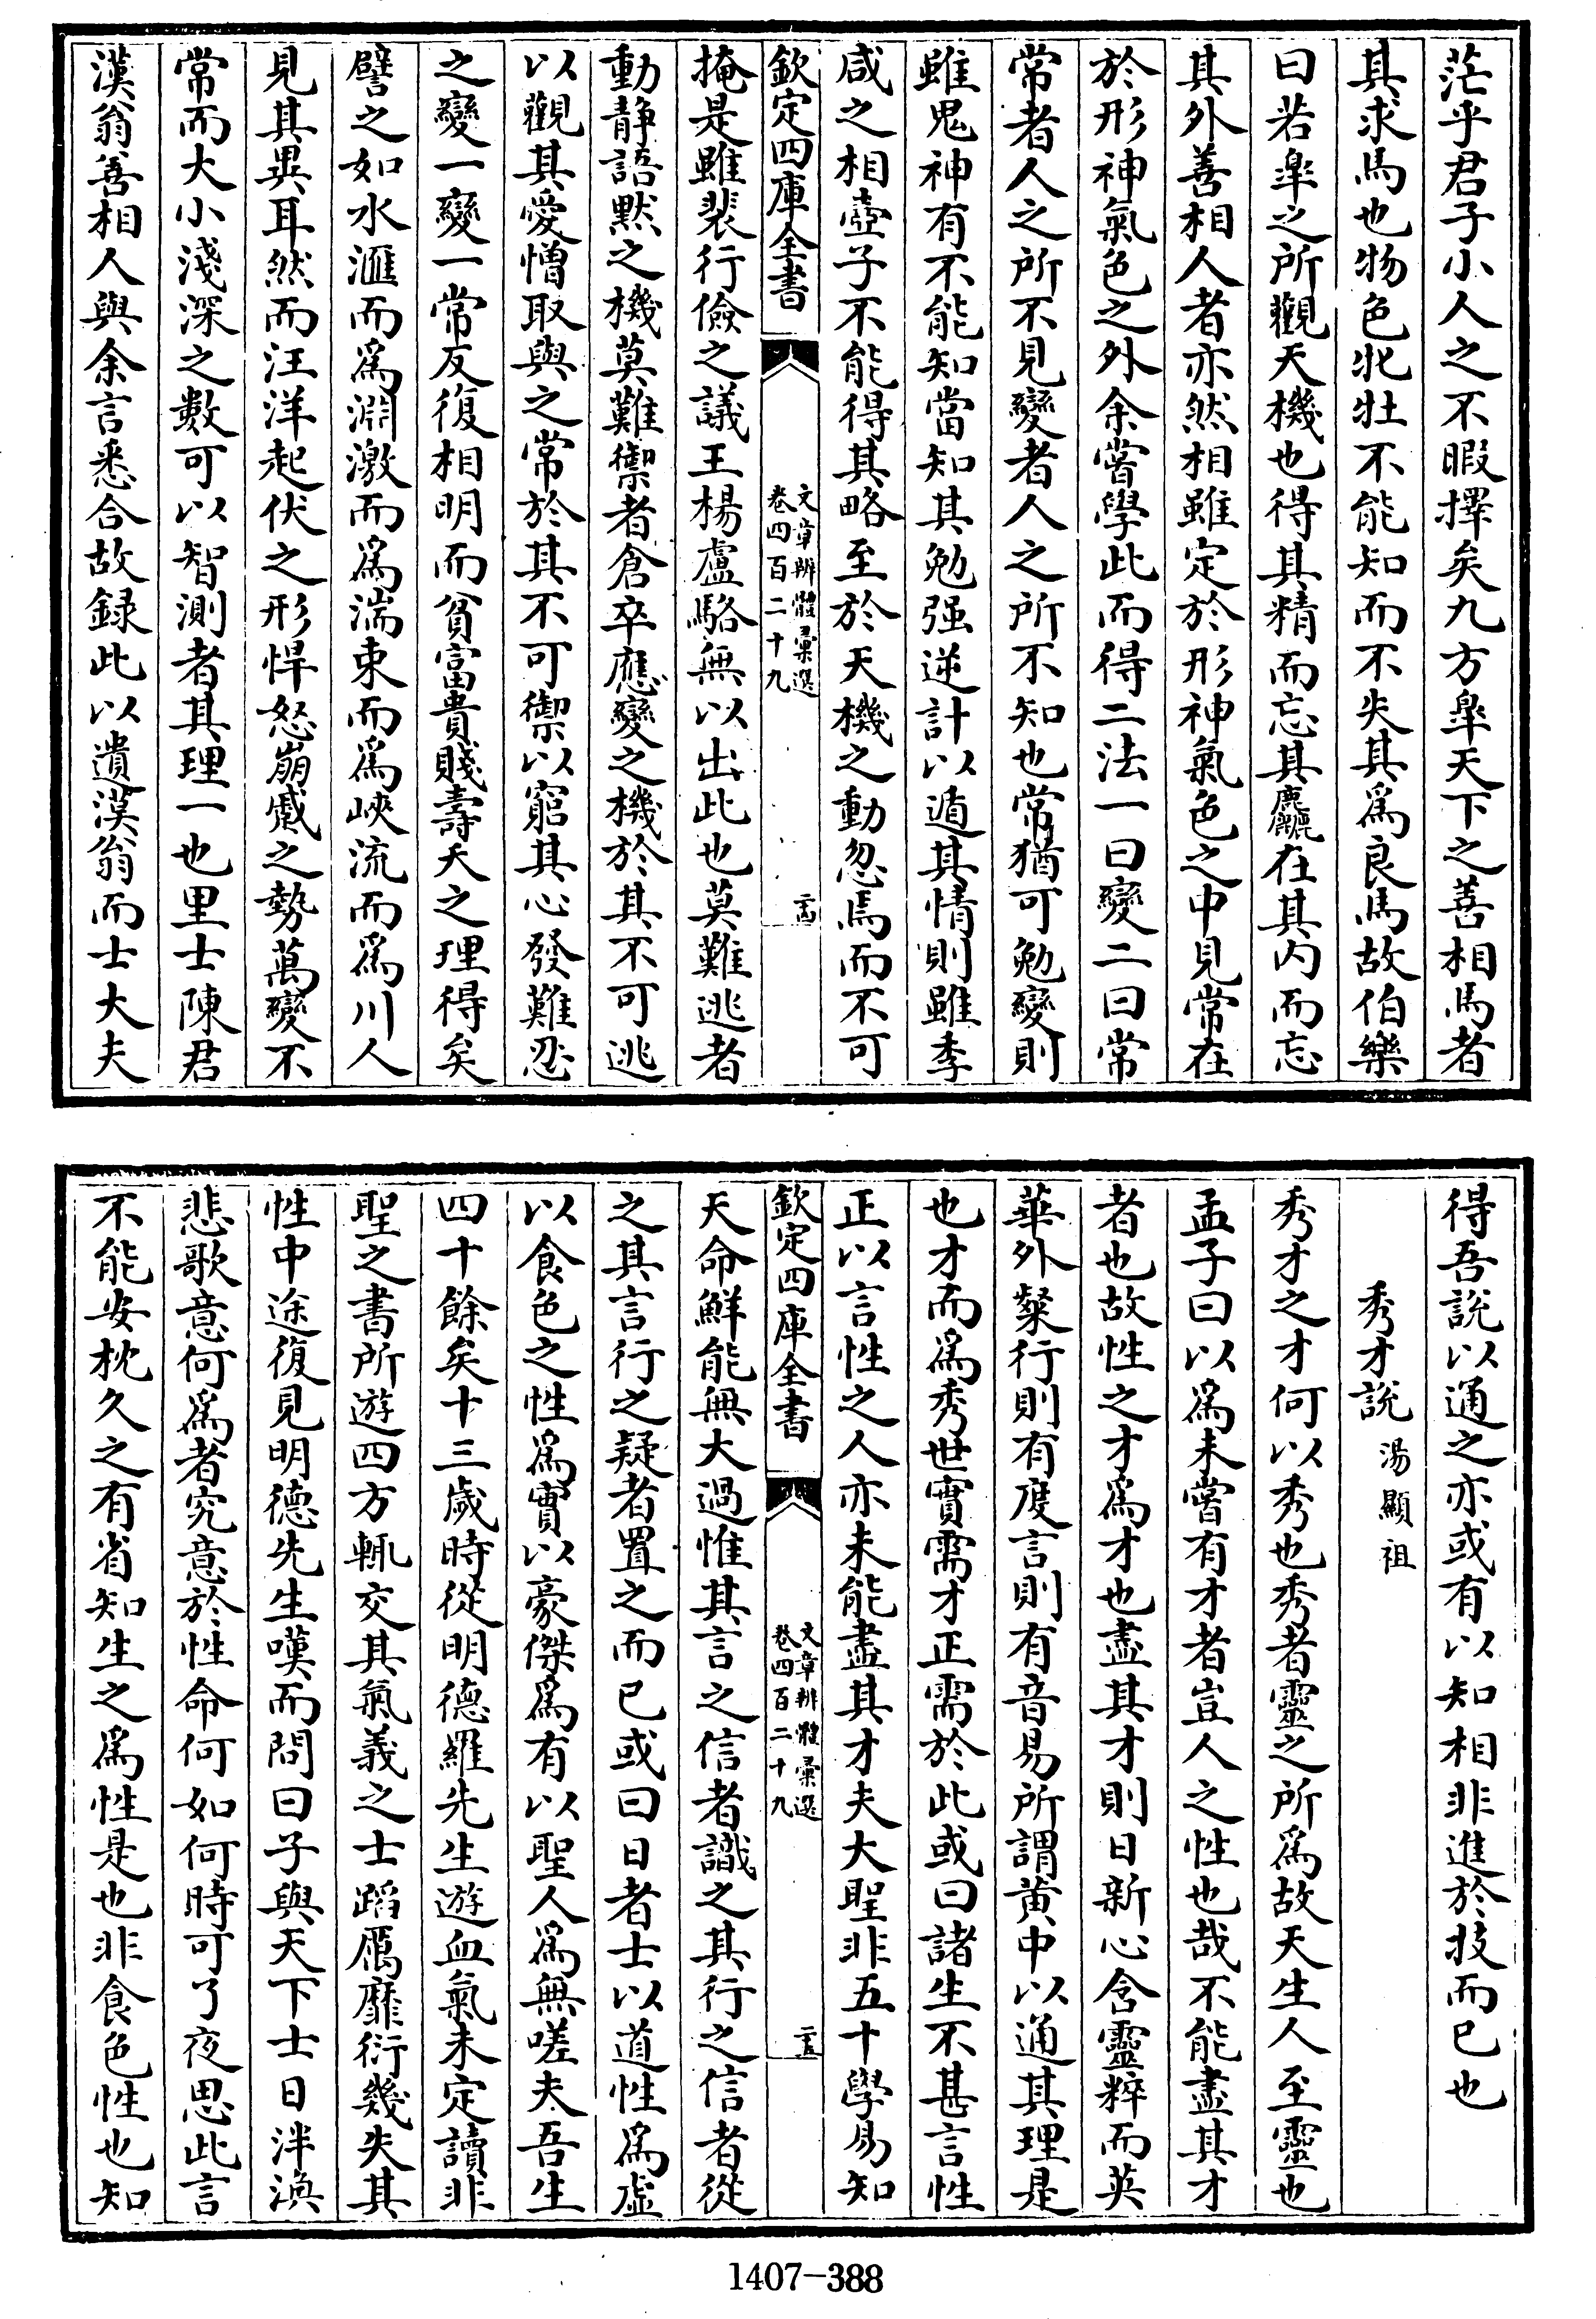 茫乎君子小人之不暇擇矣九方臯天下之善相馬者
其求馬也物色牝牡不能知而不失其為良馬故伯樂
曰若臯之所觀天機也得其精而忘其麤在其内而忘
其外善相人者亦然相雖定於形神氣色之中見常在
於形神氣色之外余嘗學此而得二法一曰變二曰常
常者人之所不見變者人之所不知也常猶可勉變則
雖鬼神有不能知當知其勉强逆計以遁其情則雖季
咸之相壺子不能得其略至於天機之動忽焉而不可
欽定四庫全書
文章辨體彙選
卷四百二十九
二十四
掩是雖裴行儉之議王楊盧駱無以出此也莫難逃者
動静語默之機莫難禦者倉卒應變之機於其不可逃
以觀其愛憎取與之常於其不可禦以窮其心發難忍
之變一變一常反復相明而貧富貴賤壽夭之理得矣
譬之如水滙而為淵激而為湍束而為峽流而為川人
見其異耳然而汪洋起伏之形悍怒崩蹙之勢萬變不
常而大小淺深之數可以智測者其理一也里士陳君
漢翁善相人與余言悉合故録此以遺漢翁而士大夫
得吾說以通之亦或有以知相非進於技而已也
秀才說 湯顯祖
秀才之才何以秀也秀者靈之所為故天生人至靈也
孟子曰以為未嘗有才者豈人之性也哉不能盡其才
者也故性之才為才也盡其才則日新心含靈粹而英
華外粲行則有度言則有音易所謂黄中以通其理是
也才而為秀世實需才正需於此或曰諸生不甚言性
正以言性之人亦未能盡其才夫大聖非五十學易知
欽定四庫全書
文章辨體彙選
卷四百二十九
二十五
天命鮮能無大過惟其言之信者識之其行之信者從
之其言行之疑者置之而已或曰日者士以道性為虚
以食色之性為實以豪傑為有以聖人為無嗟夫吾生
四十餘矣十三歲時從明德羅先生遊血氣未定讀非
聖之書所遊四方輒交其氣義之士蹈厲靡衍幾失其
性中途復見明德先生嘆而問曰子與天下士日泮渙
悲歌意何為者究意於性命何如何時可了夜思此言
不能安枕久之有省知生之為性是也非食色性也知
1407-388